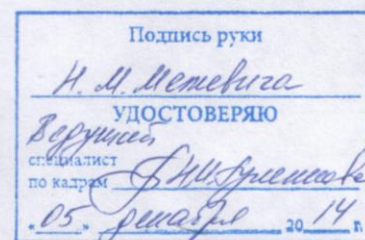 Подпись руки
Н. М. Межевича
УДОСТОВЕРЯЮ
Ведущий
специалист
по кадрам
"05" декабря 2014 г.